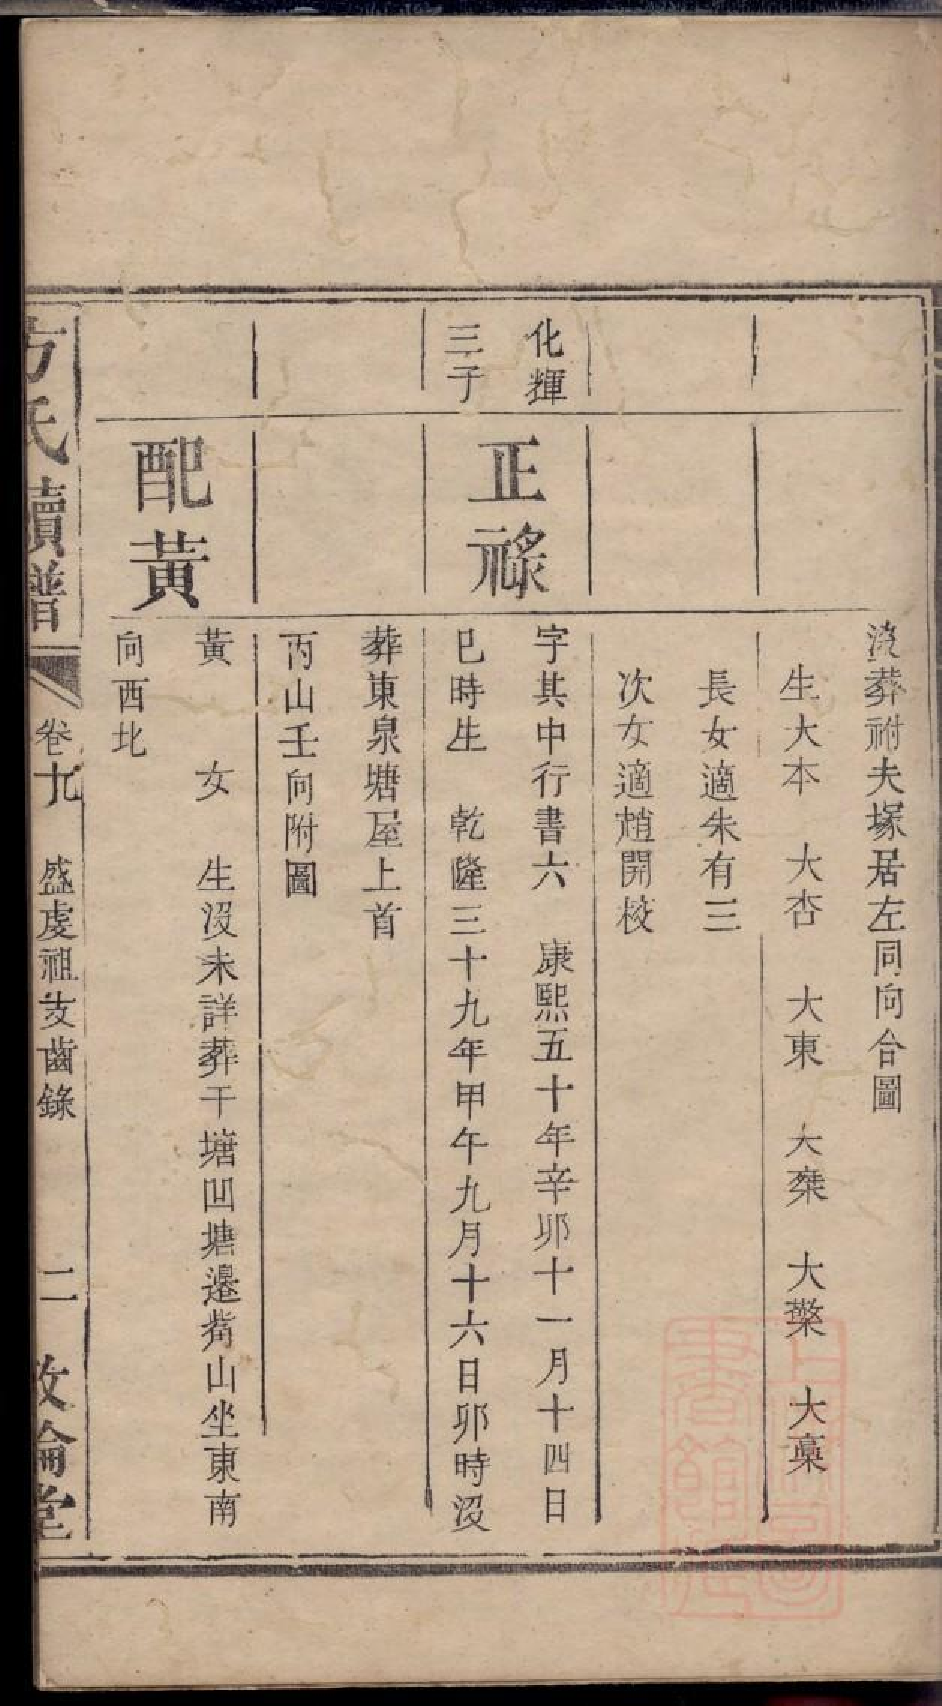 沒葬祔夫塚居左同向合圖
生大本 大杏 大東 大桀 大櫫 大槀
長女適朱有三
次女適趙開校
化輝
三子
正祿
字其中行書六 康熙五十年辛卯十一月十四日
巳時生 乾隆三十九年甲午九月十六日卯時沒
葬東泉塘屋上首
丙山壬向附圖
配黃
黃 女 生沒未詳葬干塘凹塘邊嘴山坐東南
向西北
方氏續譜 卷九 盛虔祖支齒錄 二 敦倫堂